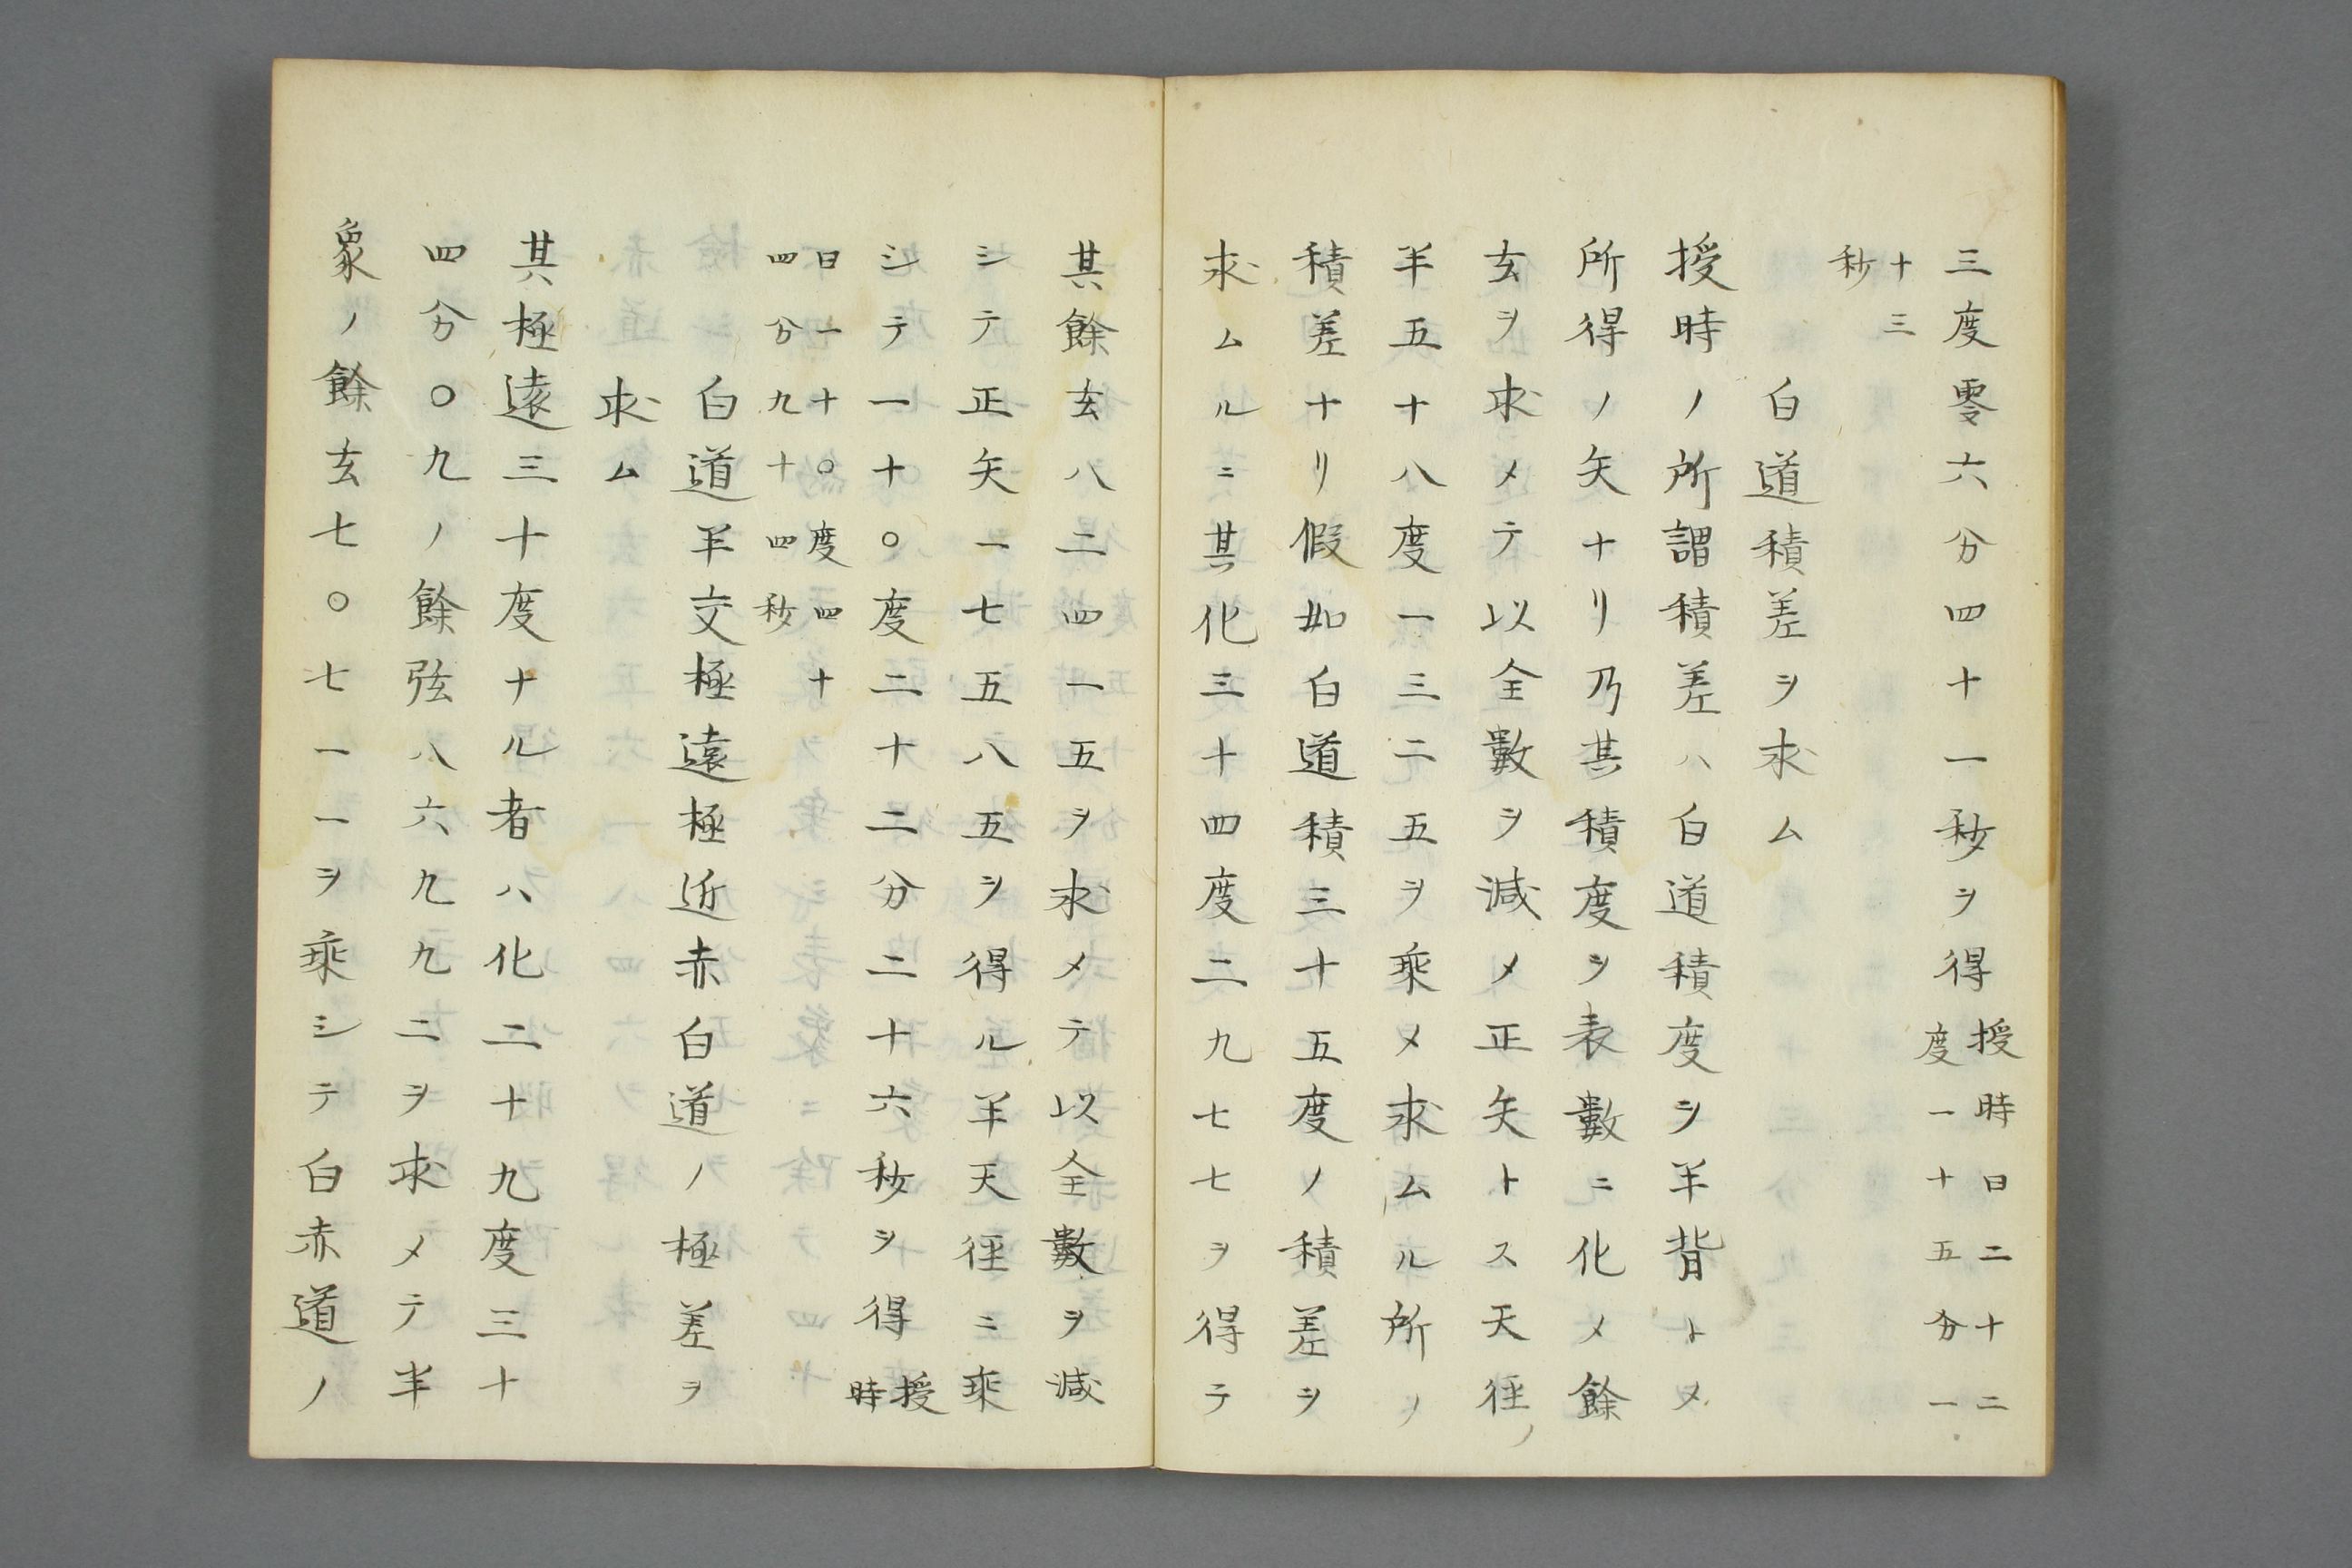 三度零六分四十一秒ヲ得授時日二十二度一十五分一
十三秒
白道積差ヲ求ム
授時ノ所謂積差ハ白道積度ヲ半背トメ
所得ノ矢ナリ乃其積度ヲ表數ニ化メ餘
玄ヲ求メテ以全數ヲ減メ正矢トス天徑ノ
半五十八度一三二五ヲ乘メ求ムル所ノ
積差ナリ假如白道積三十五度ノ積差ヲ
求ムルニ其化三十四度二九七七ヲ得テ
其餘玄八二四一五ヲ求メテ以全數ヲ減
シテ正矢一七五八五ヲ得ル半天徑ニ乘
シテ一十〇度二十二分二十六秒ヲ得授時
日一十〇度四十四分九十四秒
白道半交極遠極近赤白道ノ極差ヲ
求ム
其極遠三十度ナル者ハ化二十九度三十
四分〇九ノ餘弦八六九九二ヲ求メテ半
象ノ餘玄七〇七一一ヲ乘シテ白赤道ノ